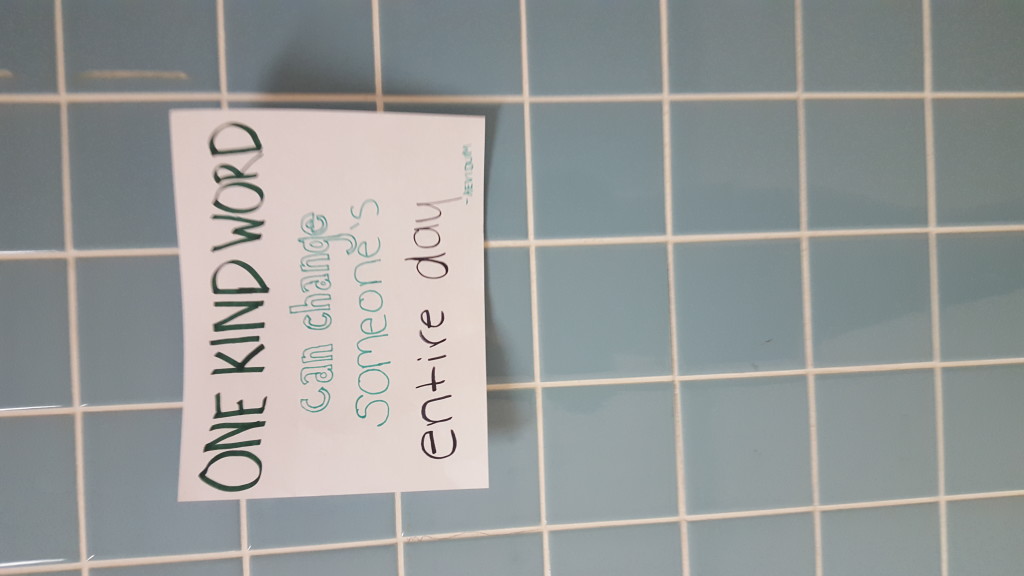 ONE KIND WORD
can change
someone's
entire day